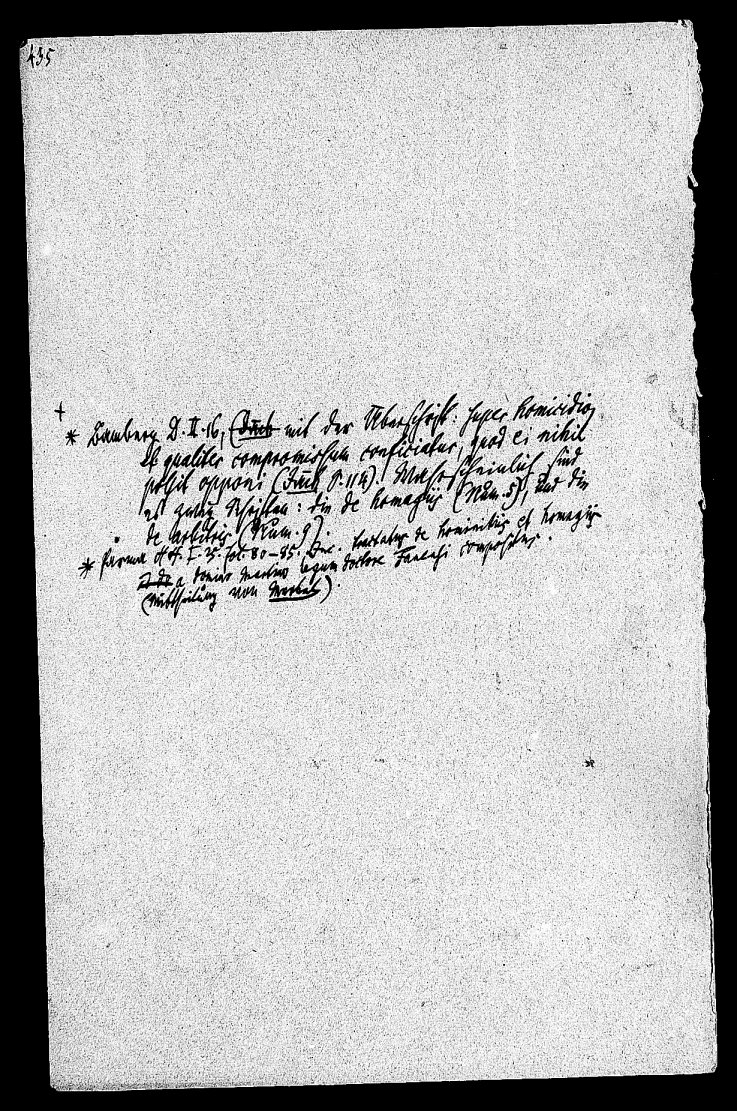 435
+
* Bamberg D. II. 16, (Jäck mit der Überschrift: super homicidio,
et qualiter compromissum conficiatur, quod ei nihil
possit opponi (Jäck S. 114). Wahrscheinlich sind
es zwey Schriften: die de homagiis (Num. 5), und die
de arbitris (Num. 9).
* Parma H. H. I. 25. fol. 80–85. Inc. tractatus de hominitiis et homagiis
a domino Martino legum doctore Fanensi compositus.
(Mittheilung von Merkel).